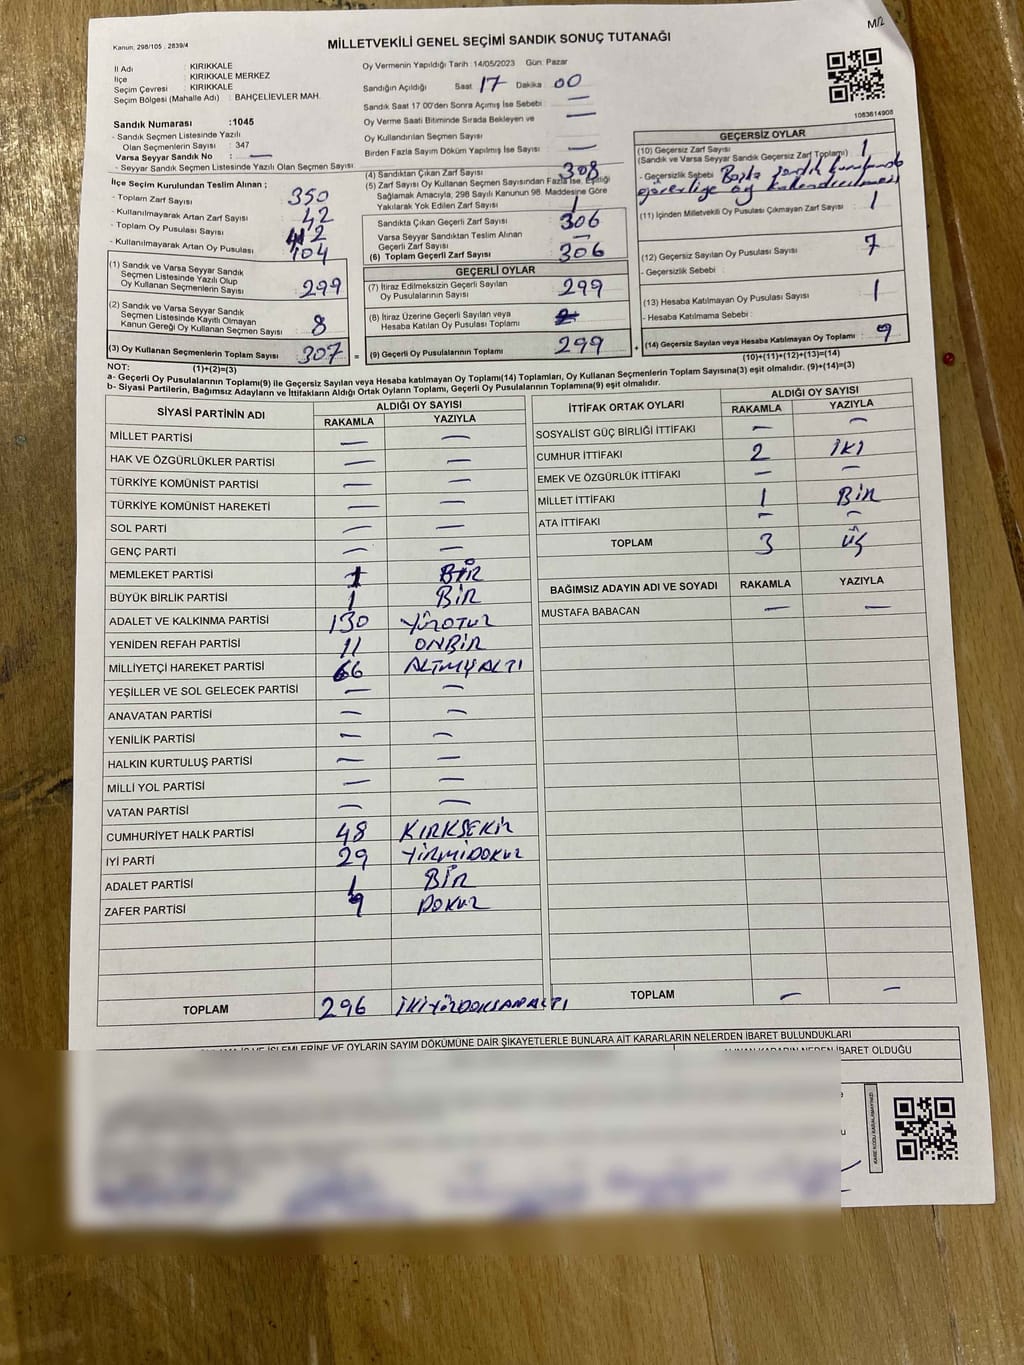 M/2
Kanun, 298/105 , 2839/4
MİLLETVEKİLİ GENEL SEÇİMİ SANDIK SONUÇ TUTANAĞI
İl Adı : KIRIKKALE
İlçe : KIRIKKALE MERKEZ
Seçim Çevresi : KIRIKKALE
Seçim Bölgesi (Mahalle Adı) : BAHÇELİEVLER MAH.
Sandık Numarası :1045
- Sandık Seçmen Listesinde Yazılı
Olan Seçmenlerin Sayısı : 347
Varsa Seyyar Sandık No : —
- Seyyar Sandık Seçmen Listesinde Yazılı Olan Seçmen Sayısı
Oy Vermenin Yapıldığı Tarih : 14/05/2023 Gün: Pazar
Sandığın Açıldığı Saat 17 Dakika 00
Sandık Saat 17 00'den Sonra Açımış İse Sebebi : —
Oy Verme Saati Bitiminde Sırada Bekleyen ve —
Oy Kullandırılan Seçmen Sayısı
Birden Fazla Sayım Döküm Yapılmış İse Sayısı : —
1083614908
İlçe Seçim Kurulundan Teslim Alınan ;
- Toplam Zarf Sayısı : 350
- Kullanılmayarak Artan Zarf Sayısı : 42
- Toplam Oy Pusulası Sayısı : 412
- Kullanılmayarak Artan Oy Pusulası : 104
(1) Sandık ve Varsa Seyyar Sandık
Seçmen Listesinde Yazılı Olup
Oy Kullanan Seçmenlerin Sayısı : 299
(2) Sandık ve Varsa Seyyar Sandık
Seçmen Listesinde Kayıtlı Olmayan
Kanun Gereği Oy Kullanan Seçmen Sayısı : 8
(3) Oy Kullanan Seçmenlerin Toplam Sayısı : 307
(1)+(2)=(3)
(4) Sandıktan Çıkan Zarf Sayısı : 308
(5) Zarf Sayısı Oy Kullanan Seçmen Sayısından Fazla İse, Eşitliği
Sağlamak Amacıyla, 298 Sayılı Kanunun 98. Maddesine Göre
Yakılarak Yok Edilen Zarf Sayısı : 1
Sandıkta Çıkan Geçerli Zarf Sayısı : 306
Varsa Seyyar Sandıktan Teslim Alınan
Geçerli Zarf Sayısı : —
(6) Toplam Geçerli Zarf Sayısı : 306
GEÇERLİ OYLAR
(7) İtiraz Edilmeksizin Geçerli Sayılan
Oy Pusulalarının Sayısı : 299
(8) İtiraz Üzerine Geçerli Sayılan veya
Hesaba Katılan Oy Pusulası Toplamı :
= (9) Geçerli Oy Pusulalarının Toplamı : 299
GEÇERSİZ OYLAR
(10) Geçersiz Zarf Sayısı : 1
(Sandık ve Varsa Seyyar Sandık Geçersiz Zarf Toplamı)
- Geçersizlik Sebebi : Başka sandık kurulunda
görevliye oy kullandırılması
(11) İçinden Milletvekili Oy Pusulası Çıkmayan Zarf Sayısı : 1
(12) Geçersiz Sayılan Oy Pusulası Sayısı : 7
- Geçersizlik Sebebi :
(13) Hesaba Katılmayan Oy Pusulası Sayısı : 1
- Hesaba Katılmama Sebebi :
+ (14) Geçersiz Sayılan veya Hesaba Katılmayan Oy Toplamı : 9
(10)+(11)+(12)+(13)=(14)
NOT:
a- Geçerli Oy Pusulalarının Toplamı(9) ile Geçersiz Sayılan veya Hesaba katılmayan Oy Toplamı(14) Toplamları, Oy Kullanan Seçmenlerin Toplam Sayısına(3) eşit olmalıdır. (9)+(14)=(3)
b- Siyasi Partilerin, Bağımsız Adayların ve İttifakların Aldığı Ortak Oyların Toplamı, Geçerli Oy Pusulalarının Toplamına(9) eşit olmalıdır.
SİYASİ PARTİNİN ADI ALDIĞI OY SAYISI
RAKAMLA YAZIYLA
MİLLET PARTİSİ — —
HAK VE ÖZGÜRLÜKLER PARTİSİ — —
TÜRKİYE KOMÜNİST PARTİSİ — —
TÜRKİYE KOMÜNİST HAREKETİ — —
SOL PARTİ — —
GENÇ PARTİ — —
MEMLEKET PARTİSİ 1 BİR
BÜYÜK BİRLİK PARTİSİ 1 BİR
ADALET VE KALKINMA PARTİSİ 130 YÜZOTUZ
YENİDEN REFAH PARTİSİ 11 ONBİR
MİLLİYETÇİ HAREKET PARTİSİ 66 ALTMIŞALTI
YEŞİLLER VE SOL GELECEK PARTİSİ — —
ANAVATAN PARTİSİ — —
YENİLİK PARTİSİ — —
HALKIN KURTULUŞ PARTİSİ — —
MİLLİ YOL PARTİSİ — —
VATAN PARTİSİ — —
CUMHURİYET HALK PARTİSİ 48 KIRKSEKİZ
İYİ PARTİ 29 YİRMİDOKUZ
ADALET PARTİSİ 1 BİR
ZAFER PARTİSİ 9 DOKUZ
TOPLAM 296 İKİYÜZDOKSANALTI
İTTİFAK ORTAK OYLARI ALDIĞI OY SAYISI
RAKAMLA YAZIYLA
SOSYALİST GÜÇ BİRLİĞİ İTTİFAKI — —
CUMHUR İTTİFAKI 2 İKİ
EMEK VE ÖZGÜRLÜK İTTİFAKI — —
MİLLET İTTİFAKI 1 BİR
ATA İTTİFAKI — —
TOPLAM 3 ÜÇ
BAĞIMSIZ ADAYIN ADI VE SOYADI RAKAMLA YAZIYLA
MUSTAFA BABACAN — —
TOPLAM — —
İŞLEMLERİNE VE OYLARIN SAYIM DÖKÜMÜNE DAİR ŞİKAYETLERLE BUNLARA AİT KARARLARIN NELERDEN İBARET BULUNDUKLARI
KARARIN NEDEN İBARET OLDUĞU
KARE KODU KARALAMAYINIZ